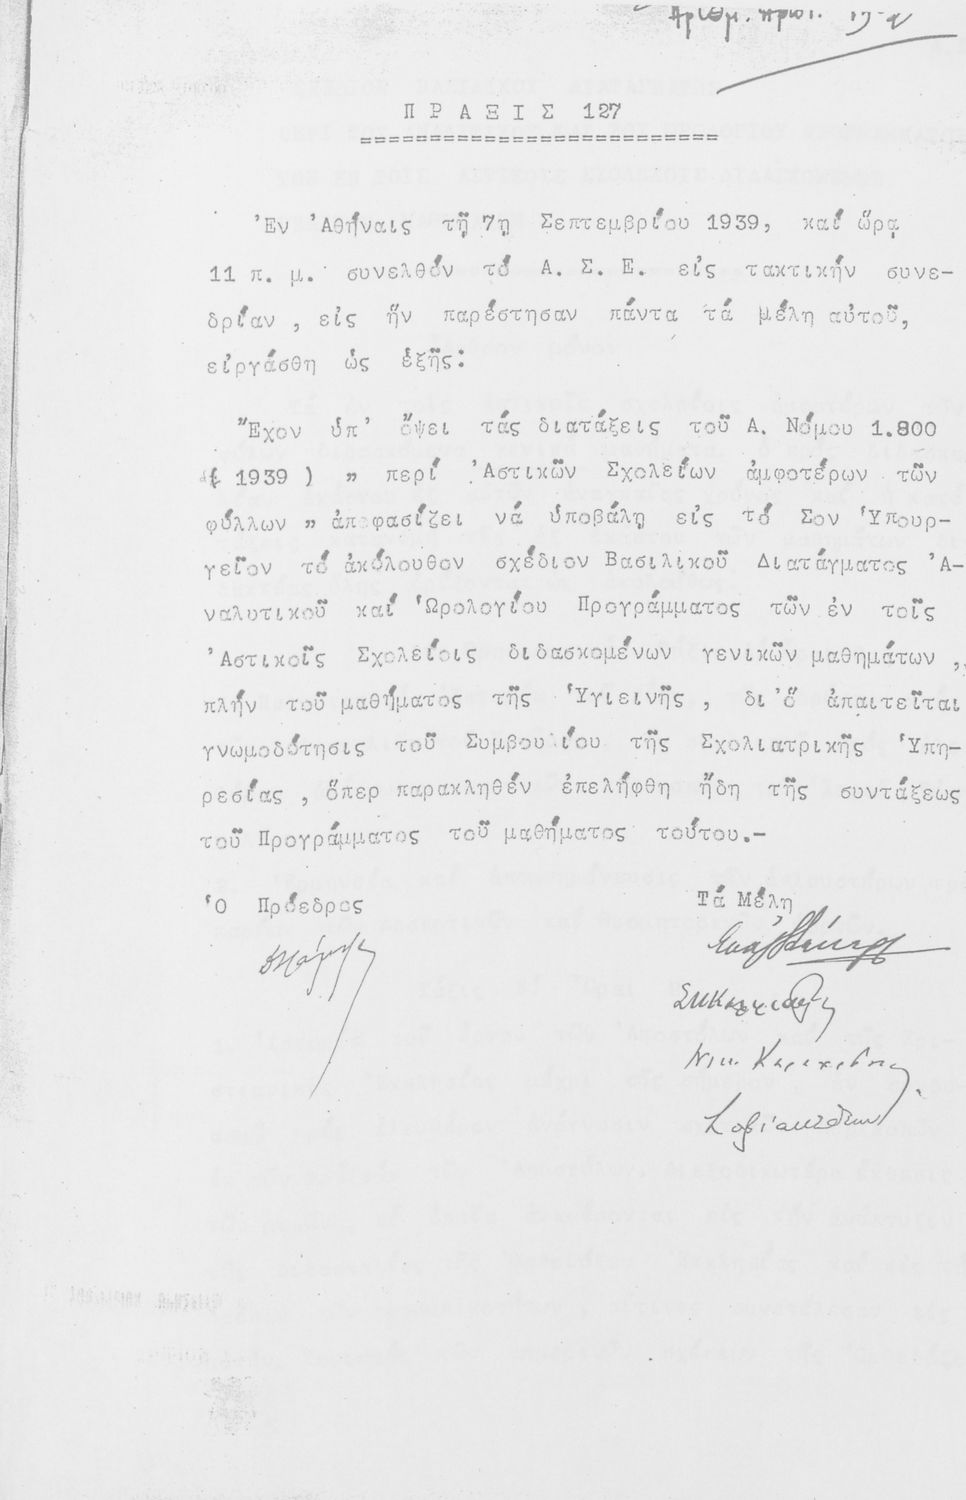 Ἀριθμ. πρωτ.
ΠΡΑΞΙΣ 127
Ἐν Ἀθήναις τῇ 7ῃ Σεπτεμβρίου 1939, καί ὥρᾳ
11 π. μ. συνελθόν τό Α. Σ. Ε. εἰς τακτικήν συνε-
δρίαν , εἰς ἥν παρέστησαν πάντα τά μέλη αὐτοῦ,
εἰργάσθη ὡς ἑξῆς:
Ἔχον ὑπ' ὄψει τάς διατάξεις τοῦ Α. Νόμου 1.800
( 1939 ) " περί Ἀστικῶν Σχολείων ἀμφοτέρων τῶν
φύλλων " ἀποφασίζει νά ὑποβάλῃ εἰς τό Σον Ὑπουρ-
γεῖον τό ἀκόλουθον σχέδιον Βασιλικοῦ Διατάγματος Ἀ-
ναλυτικοῦ καί Ὡρολογίου Προγράμματος τῶν ἐν τοῖς
Ἀστικοῖς Σχολείοις διδασκομένων γενικῶν μαθημάτων ,
πλήν τοῦ μαθήματος τῆς Ὑγιεινῆς , δι' ὅ ἀπαιτεῖται
γνωμοδότησις τοῦ Συμβουλίου τῆς Σχολιατρικῆς Ὑπη-
ρεσίας , ὅπερ παρακληθέν ἐπελήφθη ἤδη τῆς συντάξεως
τοῦ Προγράμματος τοῦ μαθήματος τούτου.-
Ὁ Πρόεδρος
Τά Μέλη